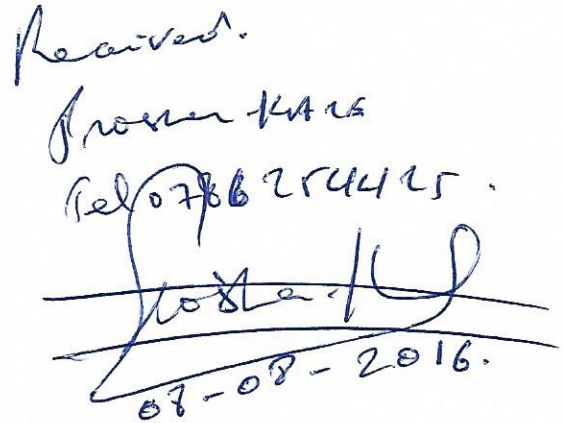 Received.
Prosper KAZE
Tel 0786254425.
08-08-2016.